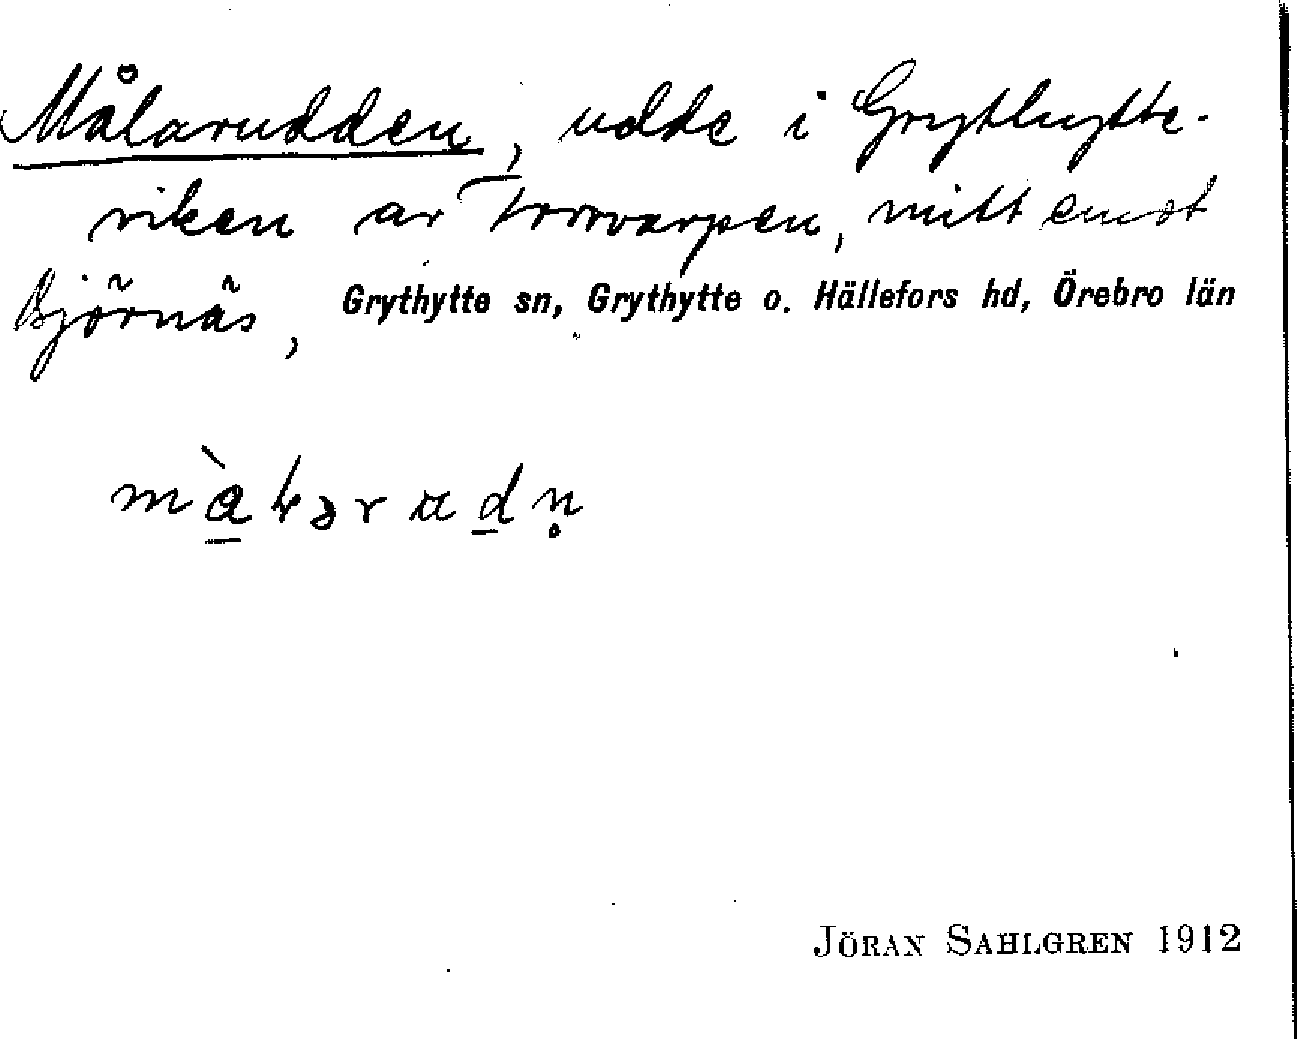 Målarudden, udde i Grythytte-
viken av Torrvarpen, mitt emot
Björnäs, Grythytte sn, Grythytte o. Hällefors hd, Örebro län
JÖRAN SAHLGREN 1912